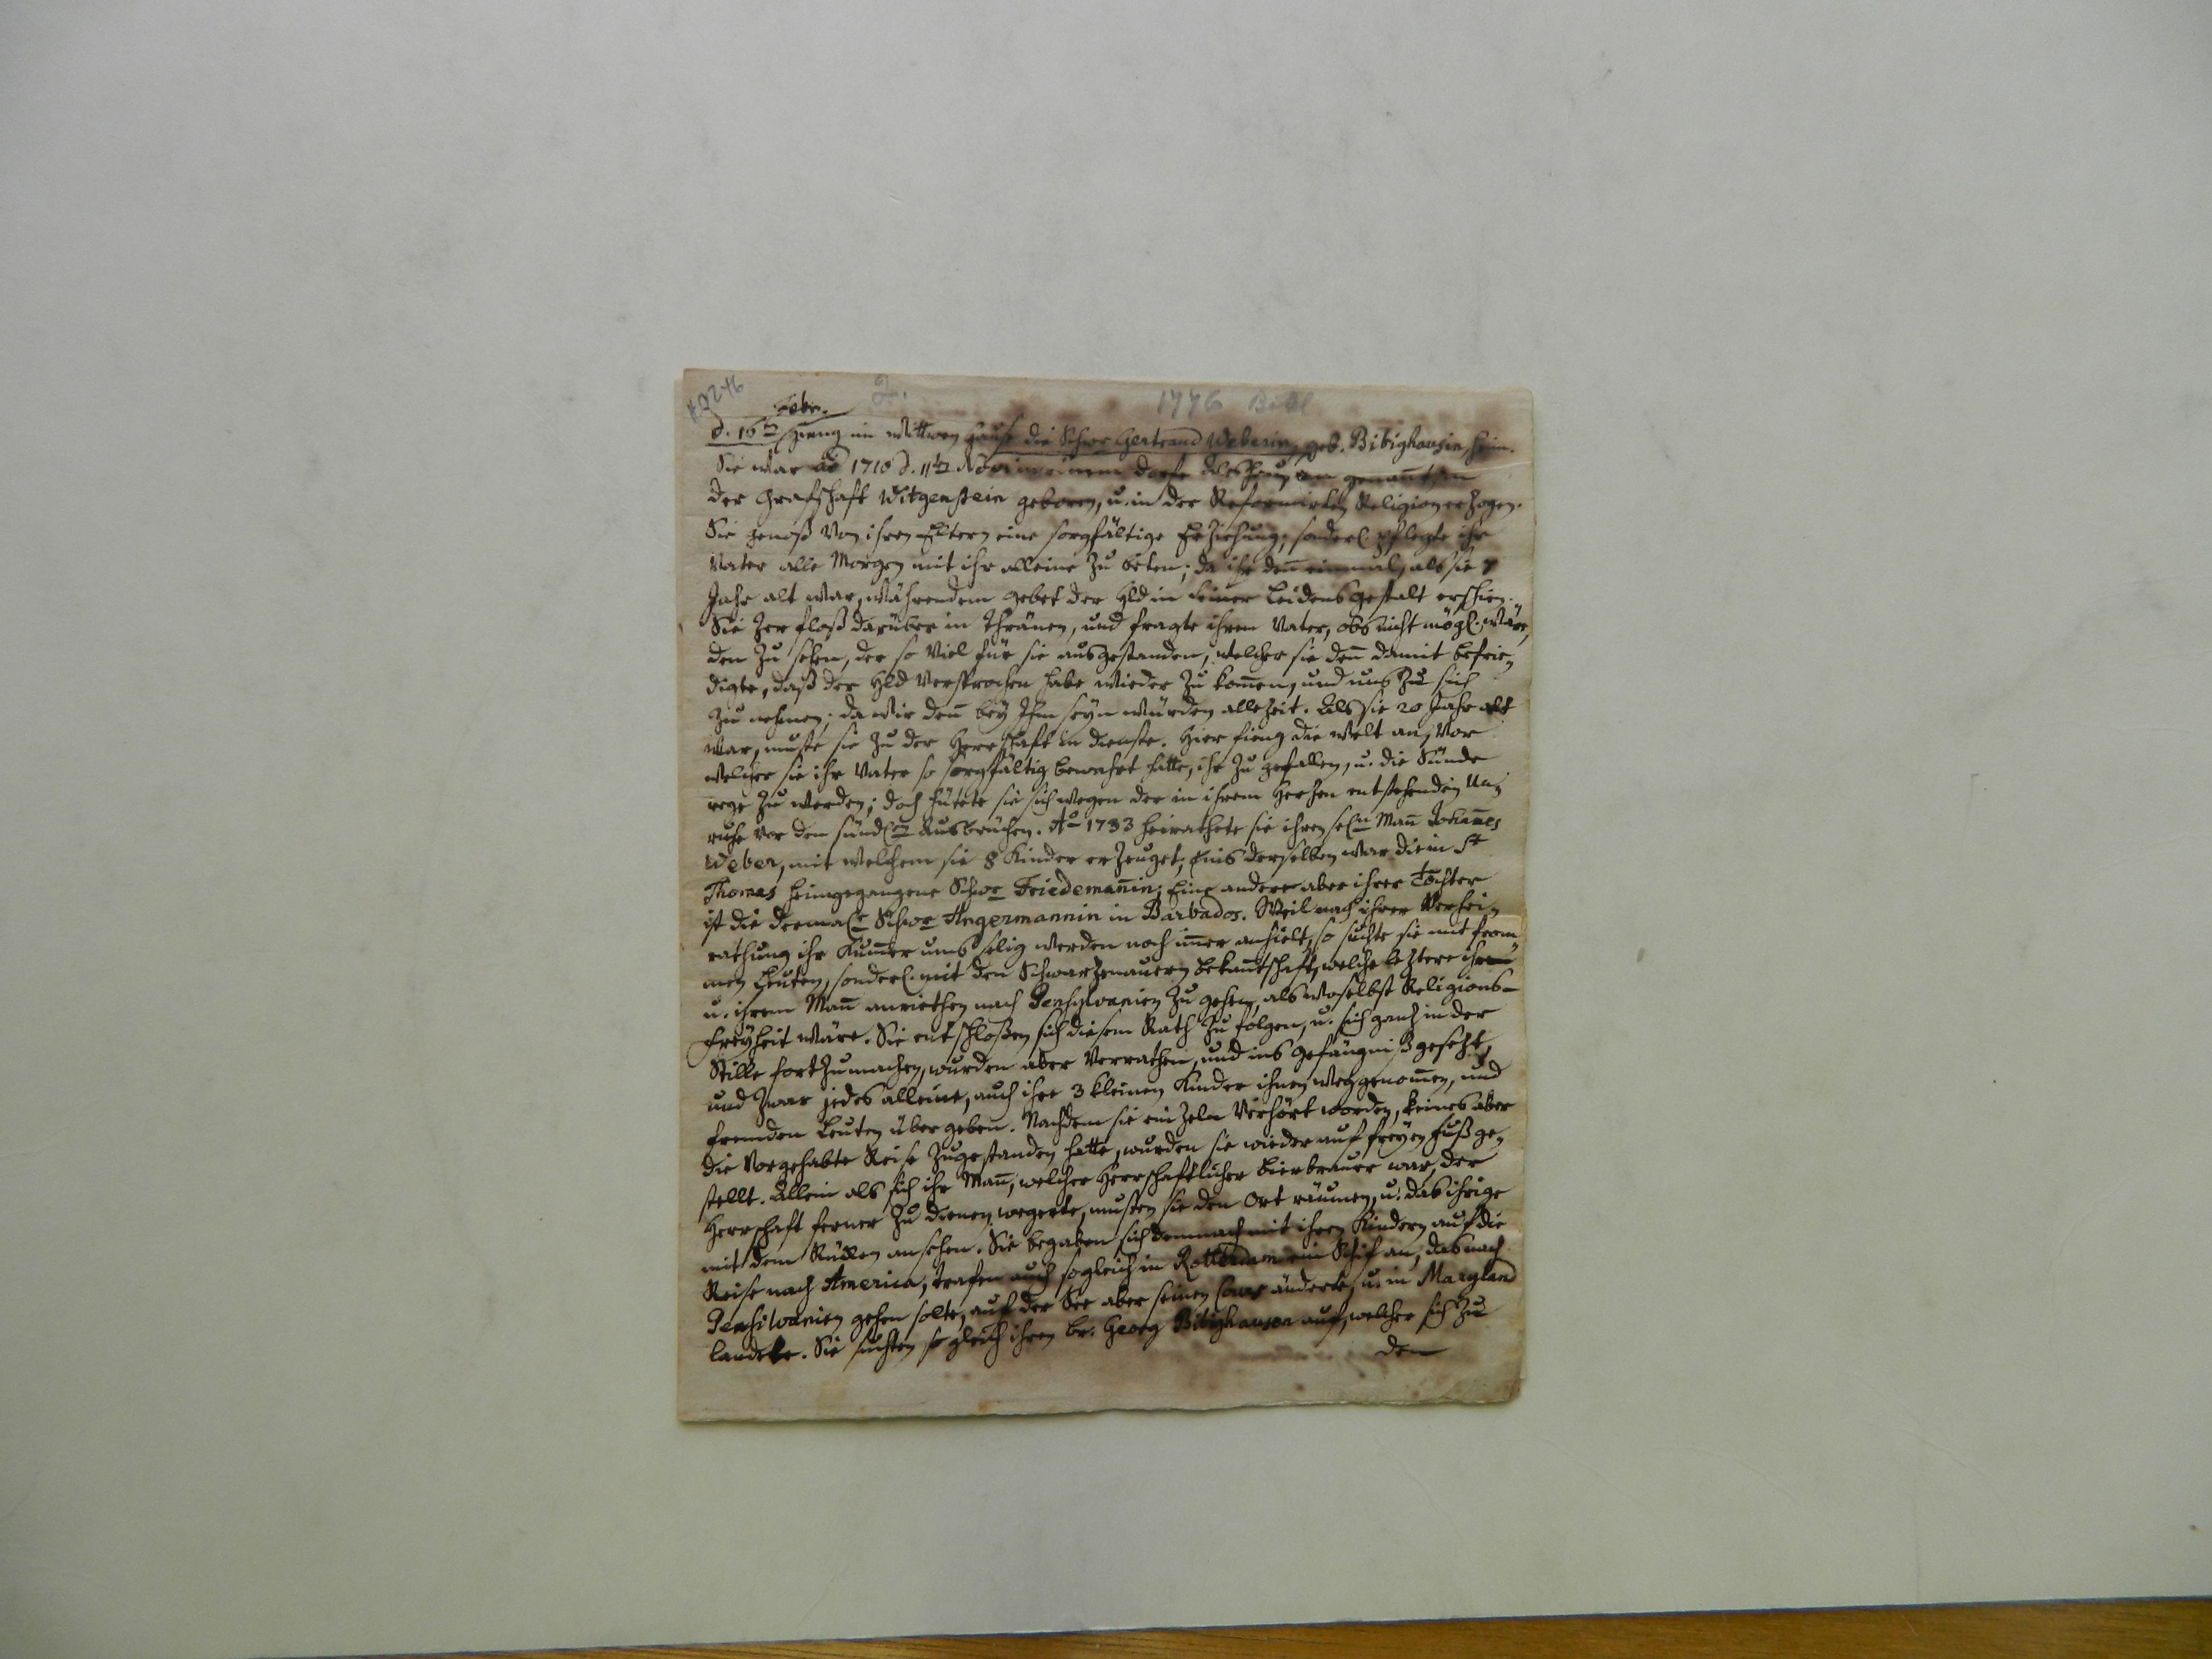 2.
1776 Bethl
Febr.
d. 16ten gieng im Wittwen Hause die Schwr Gertraud Weberin, geb. Bibighausin, heim.
Sie war ao 1710 d. 11ten Nov. in einem Dorfe genant, in
der Grafschaft Witgenstein geboren, u. in der Reformirten Religion erzogen.
Sie genoß von ihren Eltern eine sorgfältige Erziehung; sonderl. pflegte ihr
Vater alle Morgen mit ihr alleine zu beten; da ihr deñ einmal, als sie 7
Jahr alt war, währendem Gebet der Hld in Seiner Leidensgestalt erschien.
Sie zerfloß darüber in Thränen, und fragte ihren Vater, obs nicht mögl. wäre,
den zu sehen, der so viel für sie ausgestanden, welcher sie deñ damit befrie-
digte, daß der Hld versprochen habe wieder zu kom̃en, und uns zu sich
zu nehmen; da wir deñ bey Ihm seyn würden allezeit. Als sie 20 Jahr alt
war, muste sie zu der Herrschaft in Dienste. Hier fieng die Welt an, vor
welcher sie ihr Vater so sorgfältig bewahrt hatte, ihr zu gefallen, u. die Sünde
rege zu werden; doch hütete sie sich wegen der in ihrem Herzen entstehenden Un-
ruhe vor den sündl. Ausbrüchen. Ao 1733 heirathete sie ihren seln Mañ Johañes
Weber, mit welchem sie 8 Kinder erzeuget; Eins derselben war die in St
Thomas heimgegangene Schwr Friedemañin; Eine andere aber ihrer Töchter
ist die dermale Schwr Angermannin in Barbados. Weil nach ihrer Verhei-
rathung ihr Kum̃er ums selig werden noch im̃er anhielt, so suchte sie mit from-
men Leuten, sonderl. mit den Schwarzenauern Bekañtschaft, welche leztere ihr
u. ihrem Mañ anriethen nach Pensylvanien zu gehen, als woselbst Religions-
freyheit wäre. Sie entschloßen sich diesem Rath zu folgen, u. sich ganz in der
Stille fortzumachen, wurden aber verrathen, und ins Gefängniß gesezt,
und zwar jedes alleine, auch ihre 3 kleinen Kinder ihnen weggenom̃en, und
fremden Leuten übergeben. Nachdem sie einzeln verhört worden, keines aber
die vorgehabte Reise zugestanden hatte, wurden sie wieder auf freyen Fuß ge-
stellt. Allein als sich ihr Mañ, welcher Herrschaftlicher Bierbrauer war, der
Herrschaft ferner zu dienen wegerte, musten sie den Ort räumen, u. das ihrige
mit dem Rücken ansehen. Sie begaben sich demnach mit ihren Kindern auf die
Reise nach America, trafen auch sogleich in Rotterdam ein Schif an, das nach
Pensilvanien gehen solte, auf der See aber seinen Cours änderte, u. in Maryland
landete. Sie suchten sogleich ihren br. Georg Bibighausen auf, welcher sich zu
den